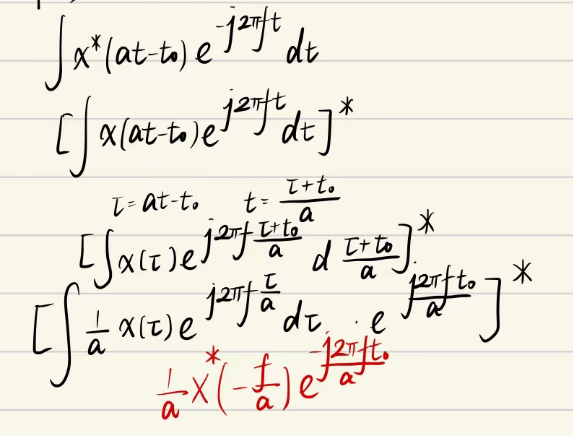 ∫x*(at-t₀)e^{-j2πft}dt
[∫x(at-t₀)e^{j2πft}dt]*
τ=at-t₀ t=\frac{τ+t₀}{a}
[∫x(τ)e^{j2πf\frac{τ+t₀}{a}} d\frac{τ+t₀}{a}]*
[∫\frac{1}{a}x(τ)e^{j2πf\frac{τ}{a}}dτ · e^{\frac{j2πft₀}{a}}]*
\frac{1}{a}X*(-\frac{f}{a})e^{-\frac{j2πft₀}{a}}